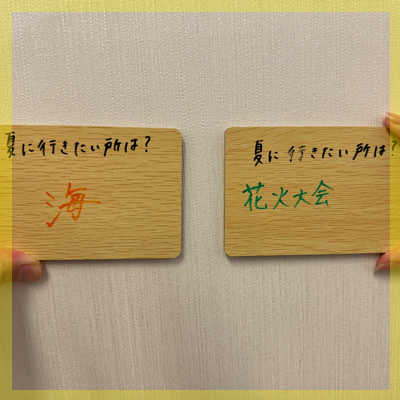 夏に行きたい所は?
海
夏に行きたい所は?
花火大会